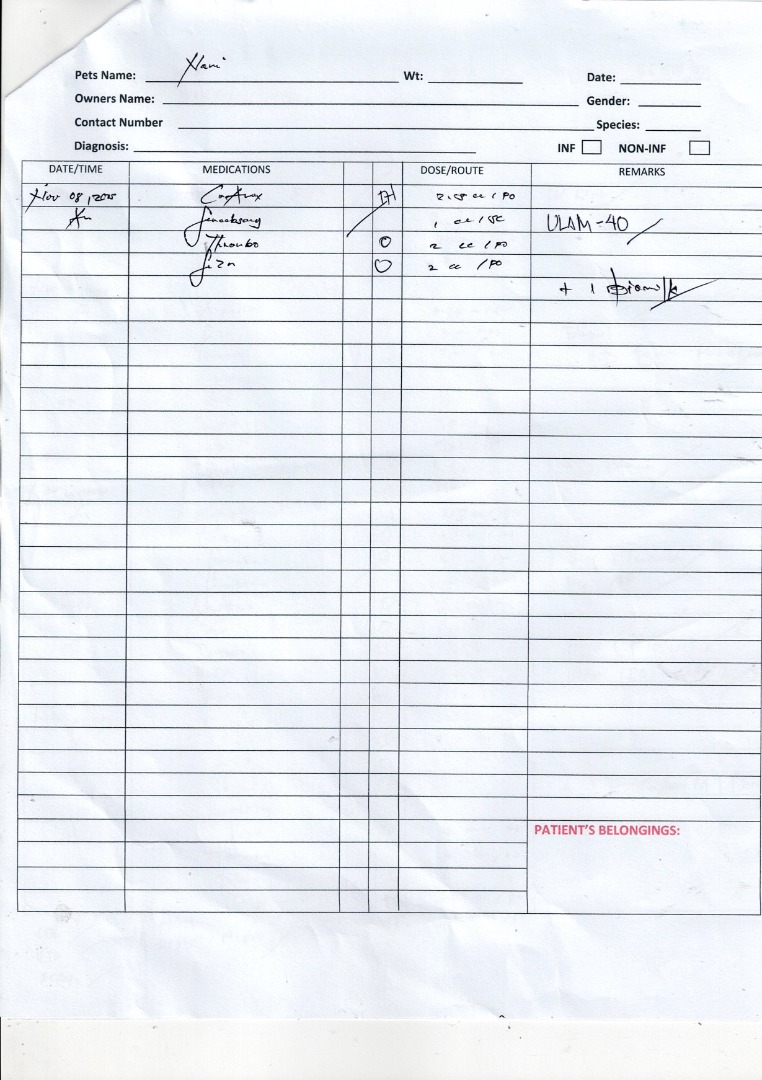 Pets Name: Wt: Date:
Owners Name: Gender:
Contact Number Species:
Diagnosis: INF NON-INF
DATE/TIME MEDICATIONS DOSE/ROUTE REMARKS
Nov 08, 2025 PO
1 cc / SC ULAM-40
Thrombo 2 cc / PO
2 cc / PO
+ 1
PATIENT'S BELONGINGS: